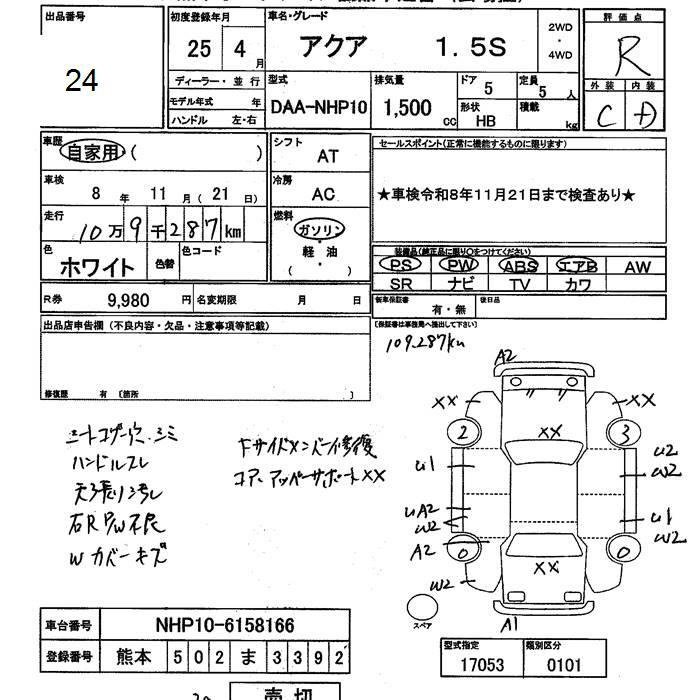 出品番号
24
初度登録年月
25 4 月
車名・グレード
アクア 1.5S
2WD
・
4WD
評価点
R
外装 内装
C D
ディーラー・並行
モデル年式 年
ハンドル 左・右
型式
DAA-NHP10
排気量
1,500 cc
ドア
5
形状
HB
定員
5 人
積載
kg
車歴
自家用・( )
車検
8 年 11 月 (21 日)
走行
10万9千287km
色
ホワイト
色替
色コード
シフト
AT
冷房
AC
燃料
ガソリン
軽・油
( ・ )
セールスポイント(正常に機能するものに限ります)
★車検令和8年11月21日まで検査あり★
装備品(純正品に限り○をつけてください)
PS PW ABS エアB AW
SR ナビ TV カワ
R券 9,980 円
名変期限 月 日
新車保証書
有・無
後日品
(保証書は事務局へ提出して下さい)
出品店申告欄(不良内容・欠品・注意事項等記載)
修復歴 有 〔箇所 〕
109,287km
シートコゲ穴、シミ
ハンドルスレ
天張り汚れ
右R P/W不良
Wカバーキズ
Fサイドメンバー修復
コア、アッパーサポートXX
A2
XX
XX
XX
2
3
U1
U2
W2
UA2
W2
U1
W2
A2
0
0
XX
W2
スペア
A1
車台番号 NHP10-6158166
登録番号 熊本 502 ま 3392
型式指定 類別区分
17053 0101
売切